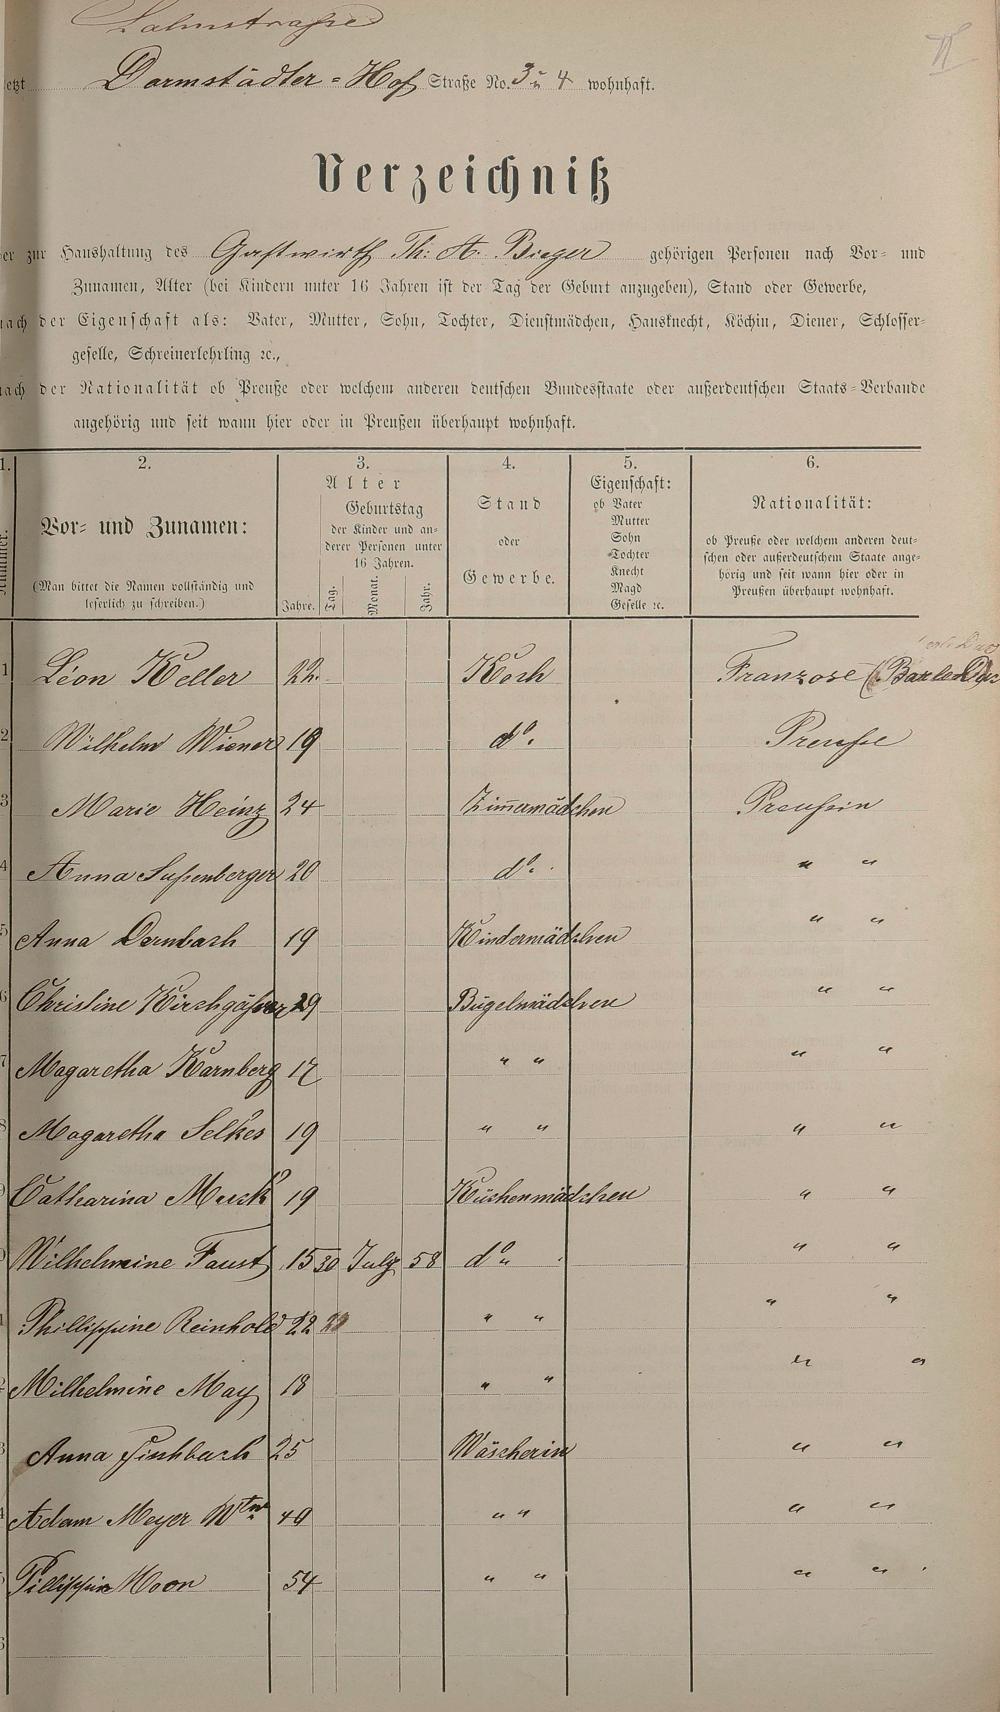 Lahnstraße
etzt Darmstädter-Hof Straße No. 3 u 4 wohnhaft.
Verzeichniß
er zur Haushaltung des Gastwirth Th: A. Bieger gehörigen Personen nach Vor- und
Zunamen, Alter (bei Kindern unter 16 Jahren ist der Tag der Geburt anzugeben), Stand oder Gewerbe,
nach der Eigenschaft als: Vater, Mutter, Sohn, Tochter, Dienstmädchen, Hausknecht, Köchin, Diener, Schlosser-
geselle, Schreinerlehrling ꝛc.,
nach der Nationalität ob Preuße oder welchem anderen deutschen Bundesstaate oder außerdeutschen Staats-Verbande
angehörig und seit wann hier oder in Preußen überhaupt wohnhaft.
1. 2. 3. 4. 5. 6.
Nummer.
Vor- und Zunamen:
(Man bittet die Namen vollständig und
leserlich zu schreiben.)
Alter
Jahre.
Geburtstag
der Kinder und an-
derer Personen unter
16 Jahren.
Tag. Monat. Jahr.
Stand
oder
Gewerbe.
Eigenschaft:
ob Vater
Mutter
Sohn
Tochter
Knecht
Magd
Geselle ꝛc.
Nationalität:
ob Preuße oder welchem anderen deut-
schen oder außerdeutschem Staate ange-
hörig und seit wann hier oder in
Preußen überhaupt wohnhaft.
1 Léon Keller 22. Koch Franzose (Bar le Duc
2 Wilhelm Wiener 19 do. Preuße
3 Marie Heinz 24 Zim̅ermädchen Preußin
4 Anna Sußenberger 20 do. " "
5 Anna Dernbach 19 Kindermädchen " "
6 Christine Kirchgäßner 29 Bügelmädchen " "
7 Magaretha Karnberg 17 " " " "
8 Magaretha Selkes 19 " " " "
9 Catharina Musk 19 Küchenmädchen " "
0 Wilhelmine Faust 15 30 July 58 do " "
1 Phillippine Reinhold 22 " " " "
2 Wilhelmine May 18 " " " "
3 Anna Fischbach 25 Wäscherin " "
4 Adam Meyer Wtw 40 " " " "
5 Pillippin Moon 54 " " " "
6